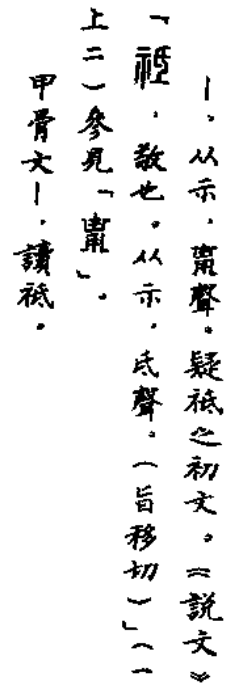 ｜，从示，聲。疑祗之初文。《說文》
「祗，敬也。从示，氐聲。（旨移切）」（一
上二）參見「」。
甲骨文｜，讀祗。